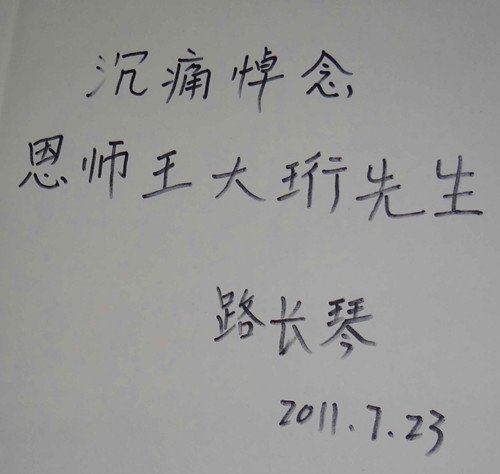 沉痛悼念
恩师王大珩先生
路长琴
2011.7.23